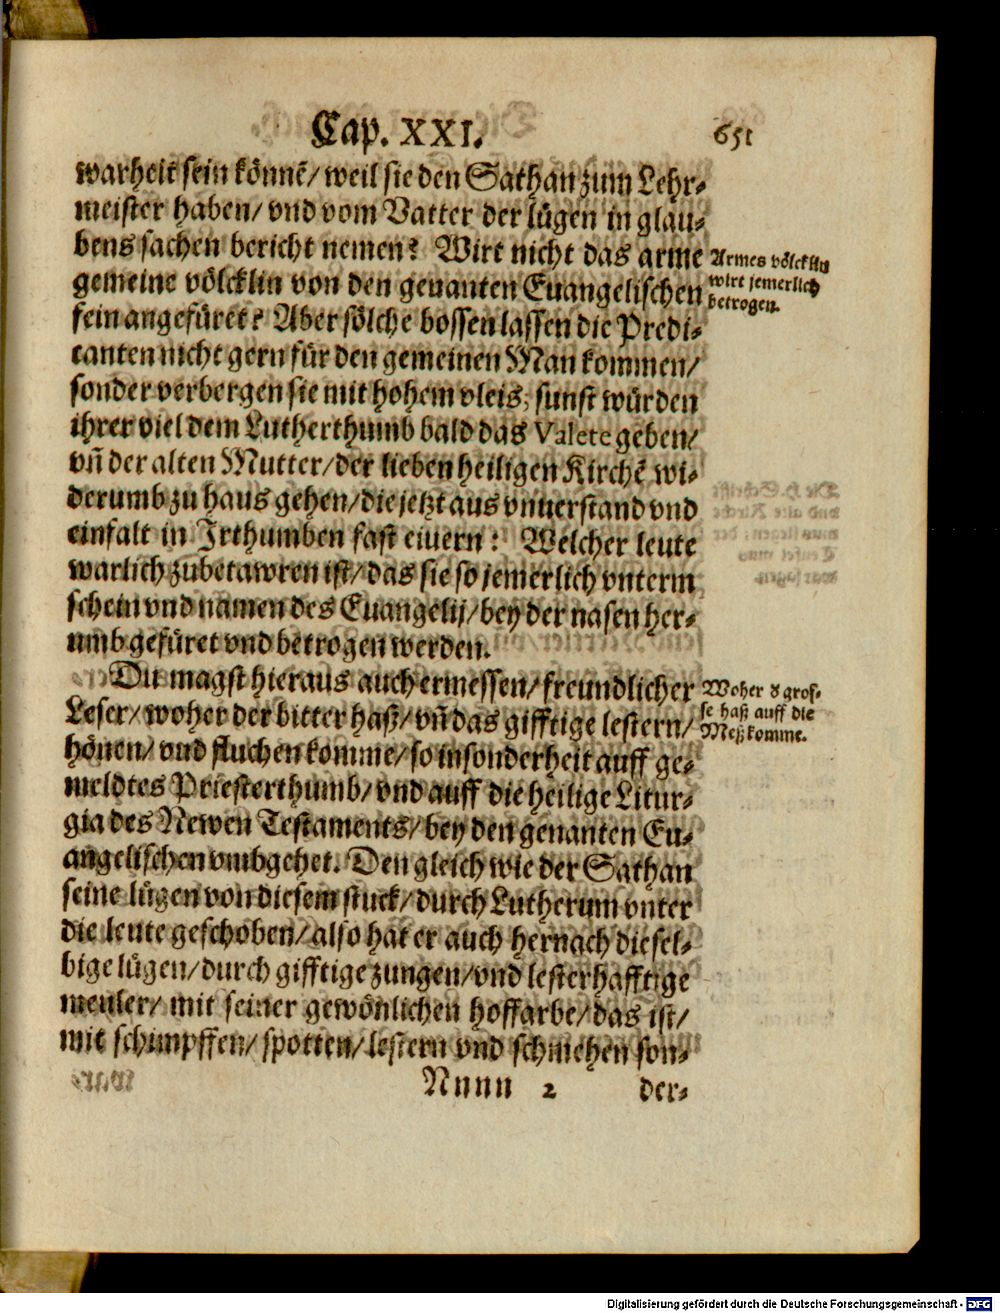 Cap. XXI. 651
warheit sein könnẽ/ weil sie den Sathan zum Lehr⸗
meister haben/ vnd vom Vatter der lügen in glau⸗
bens sachen bericht nemen? Wirt nicht das arme
gemeine völcklin von den genanten Euangelischen
fein angefüret? Aber sölche bossen lassen die Predi⸗
canten nicht gern für den gemeinen Man kommen/
sonder verbergen sie mit hohem vleis, sunst würden
ihrer viel dem Lutherthumb bald das Valete geben/
vñ der alten Mutter/ der lieben heiligen Kirchẽ wi⸗
derumb zu haus gehen/ die jetzt aus vnuerstand vnd
einfalt in Irthumben fast eiuern: Welcher leute
warlich zubetawren ist/ das sie so jemerlich vnterm
schein vnd namen des Euangelij/ bey der nasen her⸗
umb gefüret vnd betrogen werden.
Armes völcklin
wirt jemerlich
betrogen.
Du magst hieraus auch ermessen/ freundlicher
Leser/ woher der bitter haß/ vñ das gifftige lestern/
hönen/ vnd fluchen komme/ so insonderheit auff ge⸗
meldtes Priesterthumb/ vnd auff die heilige Litur⸗
gia des Newen Testaments/ bey den genanten Eu⸗
angelischen vmbgehet. Den gleich wie der Sathan
seine lügen von diesem stuck/ durch Lutherum vnter
die leute geschoben/ also hat er auch hernach diesel⸗
bige lügen/ durch gifftige zungen/ vnd lesterhafftige
meuler/ mit seiner gewönlichen hoffarbe/ das ist/
mit schimpffen/ spotten/ lestern vnd schmehen son⸗
Woher d gros⸗
se haß auff die
Meß komme.
Nnnn 2 der⸗
Digitalisierung gefördert durch die Deutsche Forschungsgemeinschaft - DFG